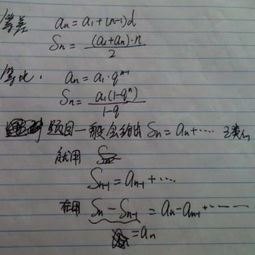 等差 aₙ = a₁+(n-1)d
Sₙ = (a₁+aₙ)·n / 2
等比: aₙ = a₁·qⁿ⁻¹
Sₙ = a₁(1-qⁿ) / 1-q
题目一般会给出 Sₙ = aₙ+…… 之类的
就用
Sₙ₋₁ = aₙ₋₁+……
在用 Sₙ - Sₙ₋₁ = aₙ - aₙ₋₁ + ……
= aₙ